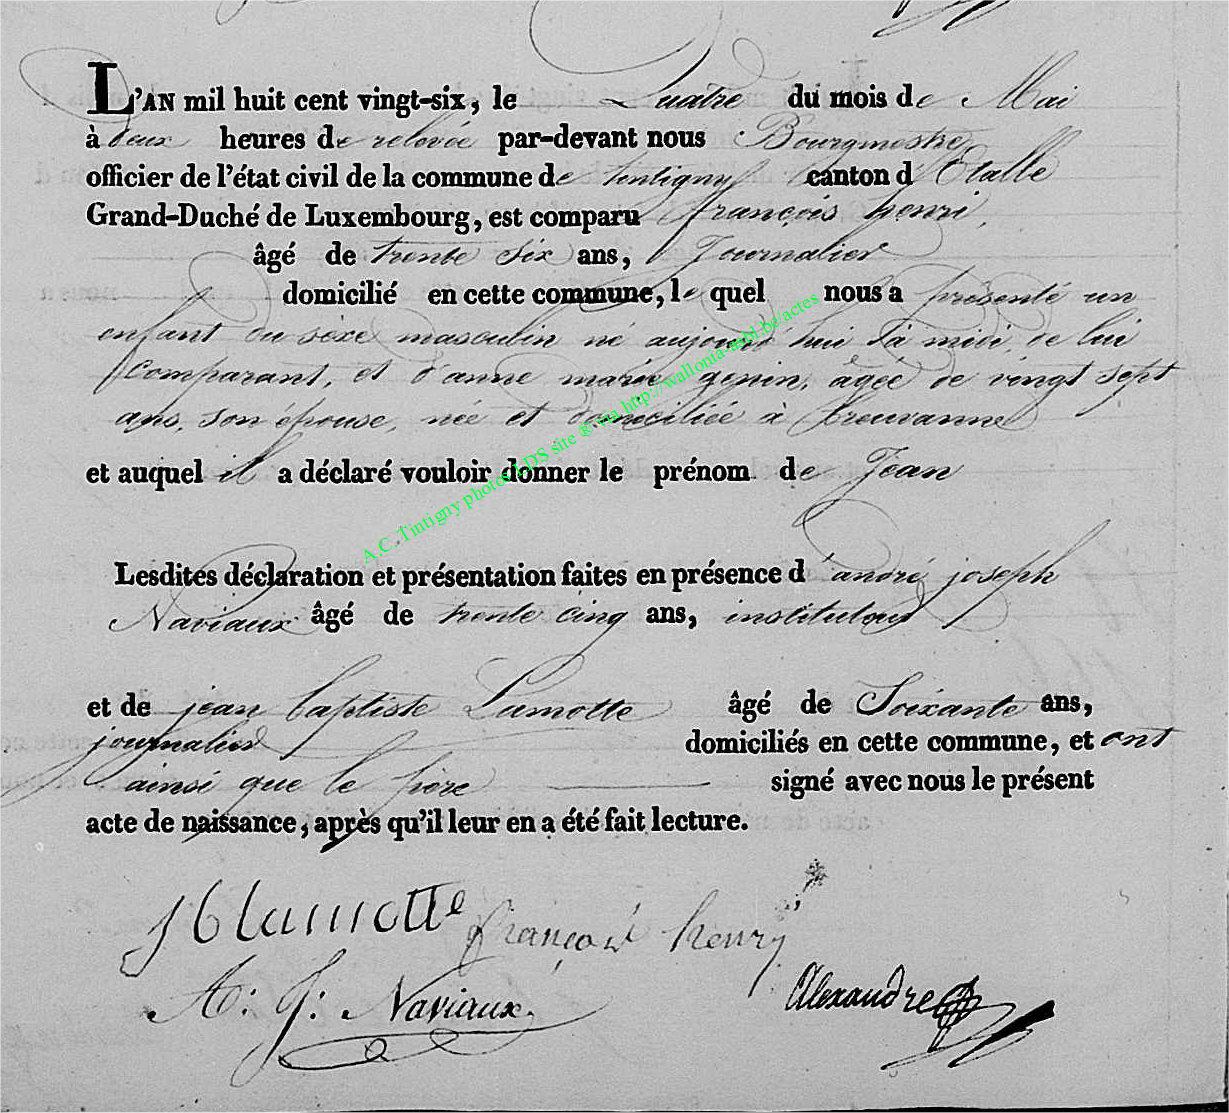 L'AN mil huit cent vingt-six, le quatre du mois de Mai
à deux heures de relevée par-devant nous Bourgmestre
officier de l'état civil de la commune de tintigny canton d'Etalle
Grand-Duché de Luxembourg, est comparu françois henri,
âgé de trente six ans, Journalier
domicilié en cette commune, le quel nous a présenté un
enfant du sèxe masculin né aujourd'hui à midi, de lui
comparant, et d'anne marie genin, âgée de vingt sept
ans, son epouse, née et domiciliée à breuvanne
et auquel il a déclaré vouloir donner le prénom de Jean
Lesdites déclaration et présentation faites en présence d'andré joseph
Naviaux âgé de trente cinq ans, instituteur
et de jean baptiste Lamotte âgé de Soixante ans,
journalier domiciliés en cette commune, et ont
ainsi que le père signé avec nous le présent
acte de naissance, après qu'il leur en a été fait lecture.
J b lamotte françois henry
A: J: Naviaux. Alexandre
A.C. Tintigny photos LDS site g via http://wallonia-asbl.be/actes